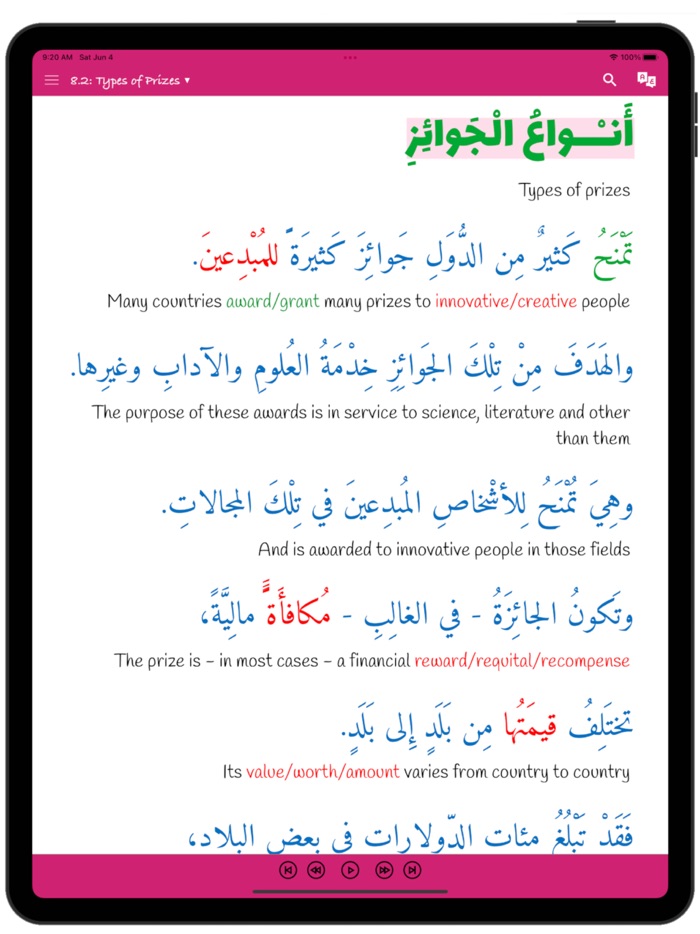 9:20 AM Sat Jun 4
100%
8.2: Types of Prizes
أَنــْــواعُ الْجَوائِزِ
Types of prizes
تَمْنَحُ كَثيرٌ مِن الدُّوَلِ جَوائِزَ كَثيرَةً للمُبْدِعينَ.
Many countries award/grant many prizes to innovative/creative people
والهَدَفَ مِنْ تِلْكَ الجَوَائِزِ خِدْمَةُ العُلومِ والآدابِ وغيرِها.
The purpose of these awards is in service to science, literature and other
than them
وهِيَ تُمْنَحُ لِلأشْخاصِ المُبدِعينَ في تِلْكَ المجالاتِ.
And is awarded to innovative people in those fields
وتَكونُ الجائِزَةُ - في الغالِبِ - مُكافأَةً ماليَّةً،
The prize is – in most cases – a financial reward/requital/recompense
تختَلِفُ قيمَتُها مِن بَلَدٍ إِلى بَلَدٍ.
Its value/worth/amount varies from country to country
فَقَدْ تَبْلُغُ مئات الدّولارات في بعض البلاد،